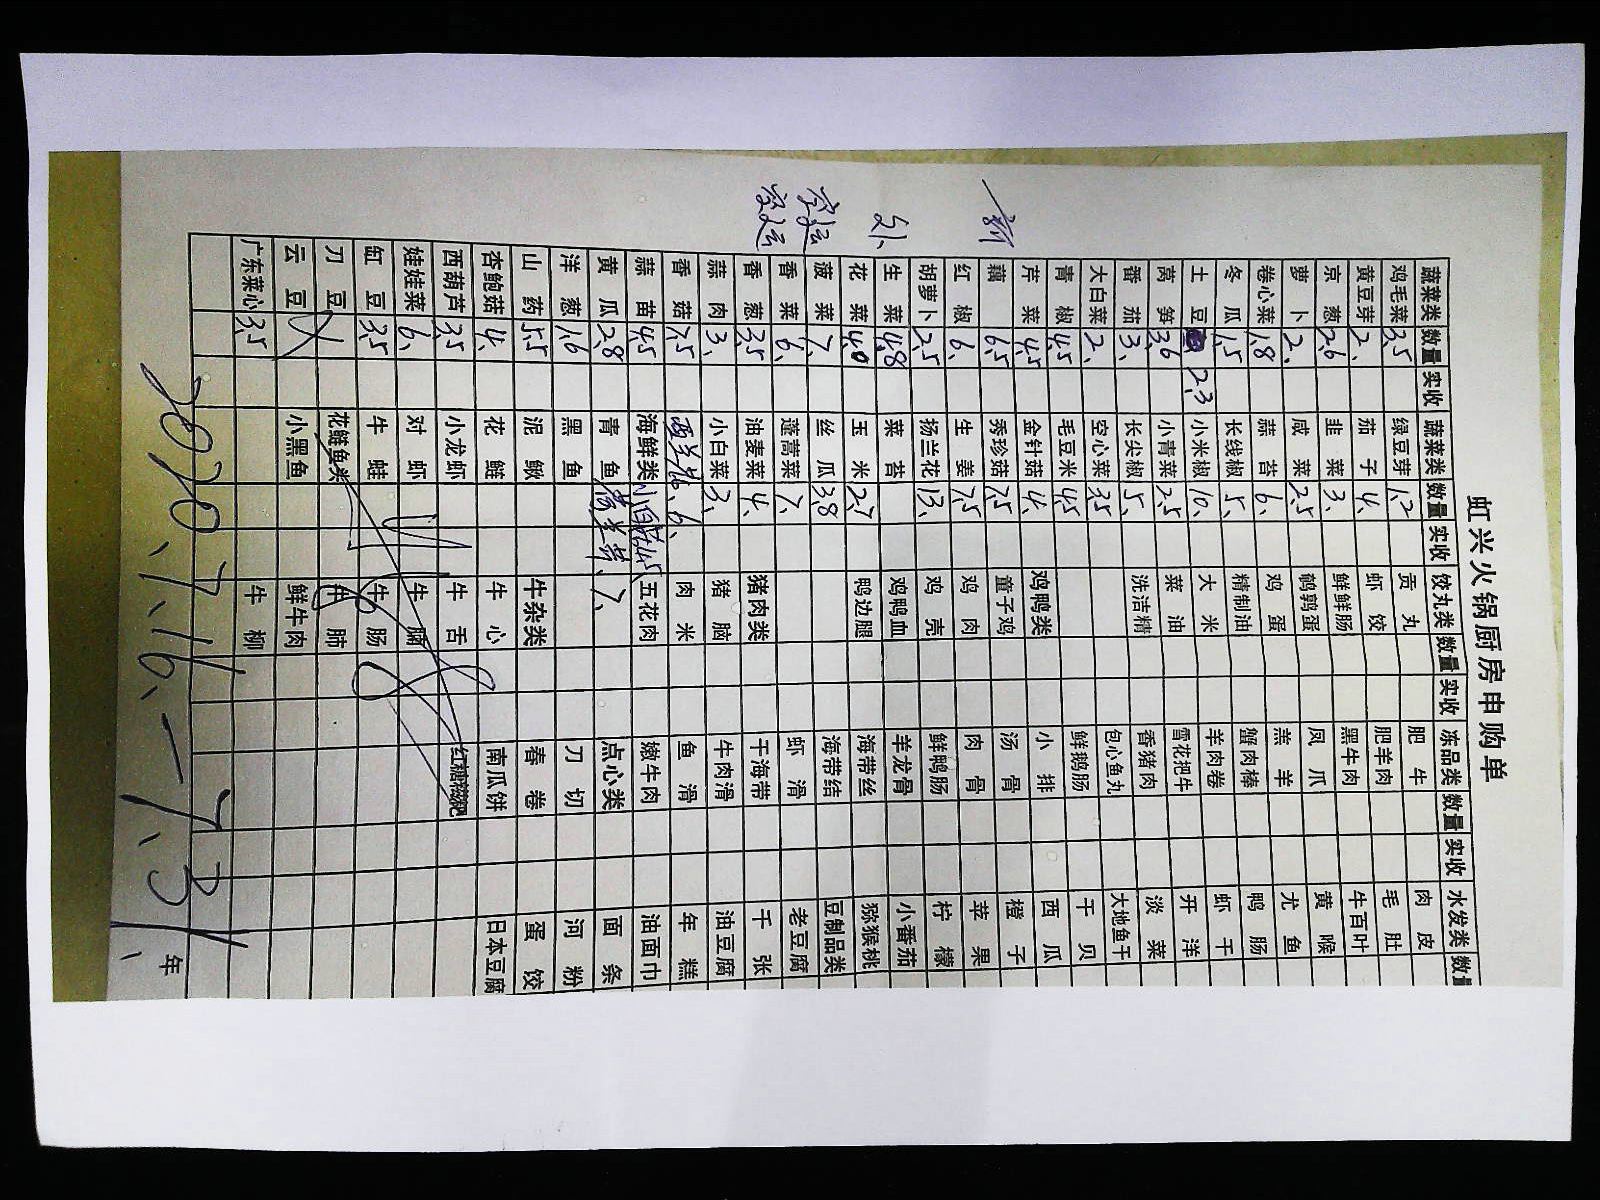 虹兴火锅厨房申购单
蔬菜类 数量 实收 蔬菜类 数量 实收 饺丸类 数量 实收 冻品类 数量 实收 水发类 数量
鸡毛菜 3.5 绿豆芽 1.2 贡丸 肥牛 肉皮
黄豆芽 2、 茄子 4、 虾饺 肥羊肉 毛肚
京葱 2.6 韭菜 3、 鲜鲜肠 黑牛肉 牛百叶
萝卜 2、 咸菜 2.5 鹌鹑蛋 凤爪 黄喉
卷心菜 1.8 蒜苔 6、 鸡蛋 羔羊 尤鱼
冬瓜 1.5 长线椒 5、 精制油 蟹肉棒 鸭肠
土豆 2.3 小米椒 10、 大米 羊肉卷 虾干
莴笋 3.6 小青菜 2.5 菜油 雪花把牛 开洋
番茄 3、 长尖椒 5、 洗洁精 香猪肉 淡菜
大白菜 2、 空心菜 3.5 包心鱼丸 大地鱼干
青椒 4.5 毛豆米 4.5 鲜鹅肠 干贝
芹菜 4.5 金针菇 4、 鸡鸭类 小排 西瓜
藕 6.5 秀珍菇 7.5 童子鸡 汤骨 橙子
红椒 6、 生姜 7.5 鸡肉 肉骨 苹果
胡萝卜 2.5 扬兰花 13、 鸡壳 鲜鸭肠 柠檬
生菜 4.8 菜苔 鸡鸭血 羊龙骨 小番茄
花菜 4.0 玉米 2.7 鸭边腿 海带丝 猕猴桃
菠菜 7、 丝瓜 3.8 海带结 豆制品类
香菜 6、 蓬蒿菜 7、 虾滑 老豆腐
香葱 3.5 油麦菜 4、 猪肉类 干海带 千张
蒜肉 3、 小白菜 3、 猪脑 牛肉滑 油豆腐
香菇 7.5 西兰花 6、 肉米 鱼滑 年糕
蒜苗 4.5 海鲜类 五花肉 嫩牛肉 油面巾
黄瓜 2.8 青鱼 7、 点心类 面条
洋葱 1.6 黑鱼 刀切 河粉
山药 5.5 泥鳅 牛杂类 春卷 蛋饺
杏鲍菇 4、 花鲢 牛心 南瓜饼 日本豆腐
西葫芦 3.5 小龙虾 牛舌 红糖糍粑
娃娃菜 6、 对虾 牛脑
缸豆 3.5 牛蛙 牛肠
刀豆 花鲢鱼头 牛肺
云豆 小黑鱼 鲜牛肉
广东菜心 3.5 牛柳
2020、1、16、一1、31、
年